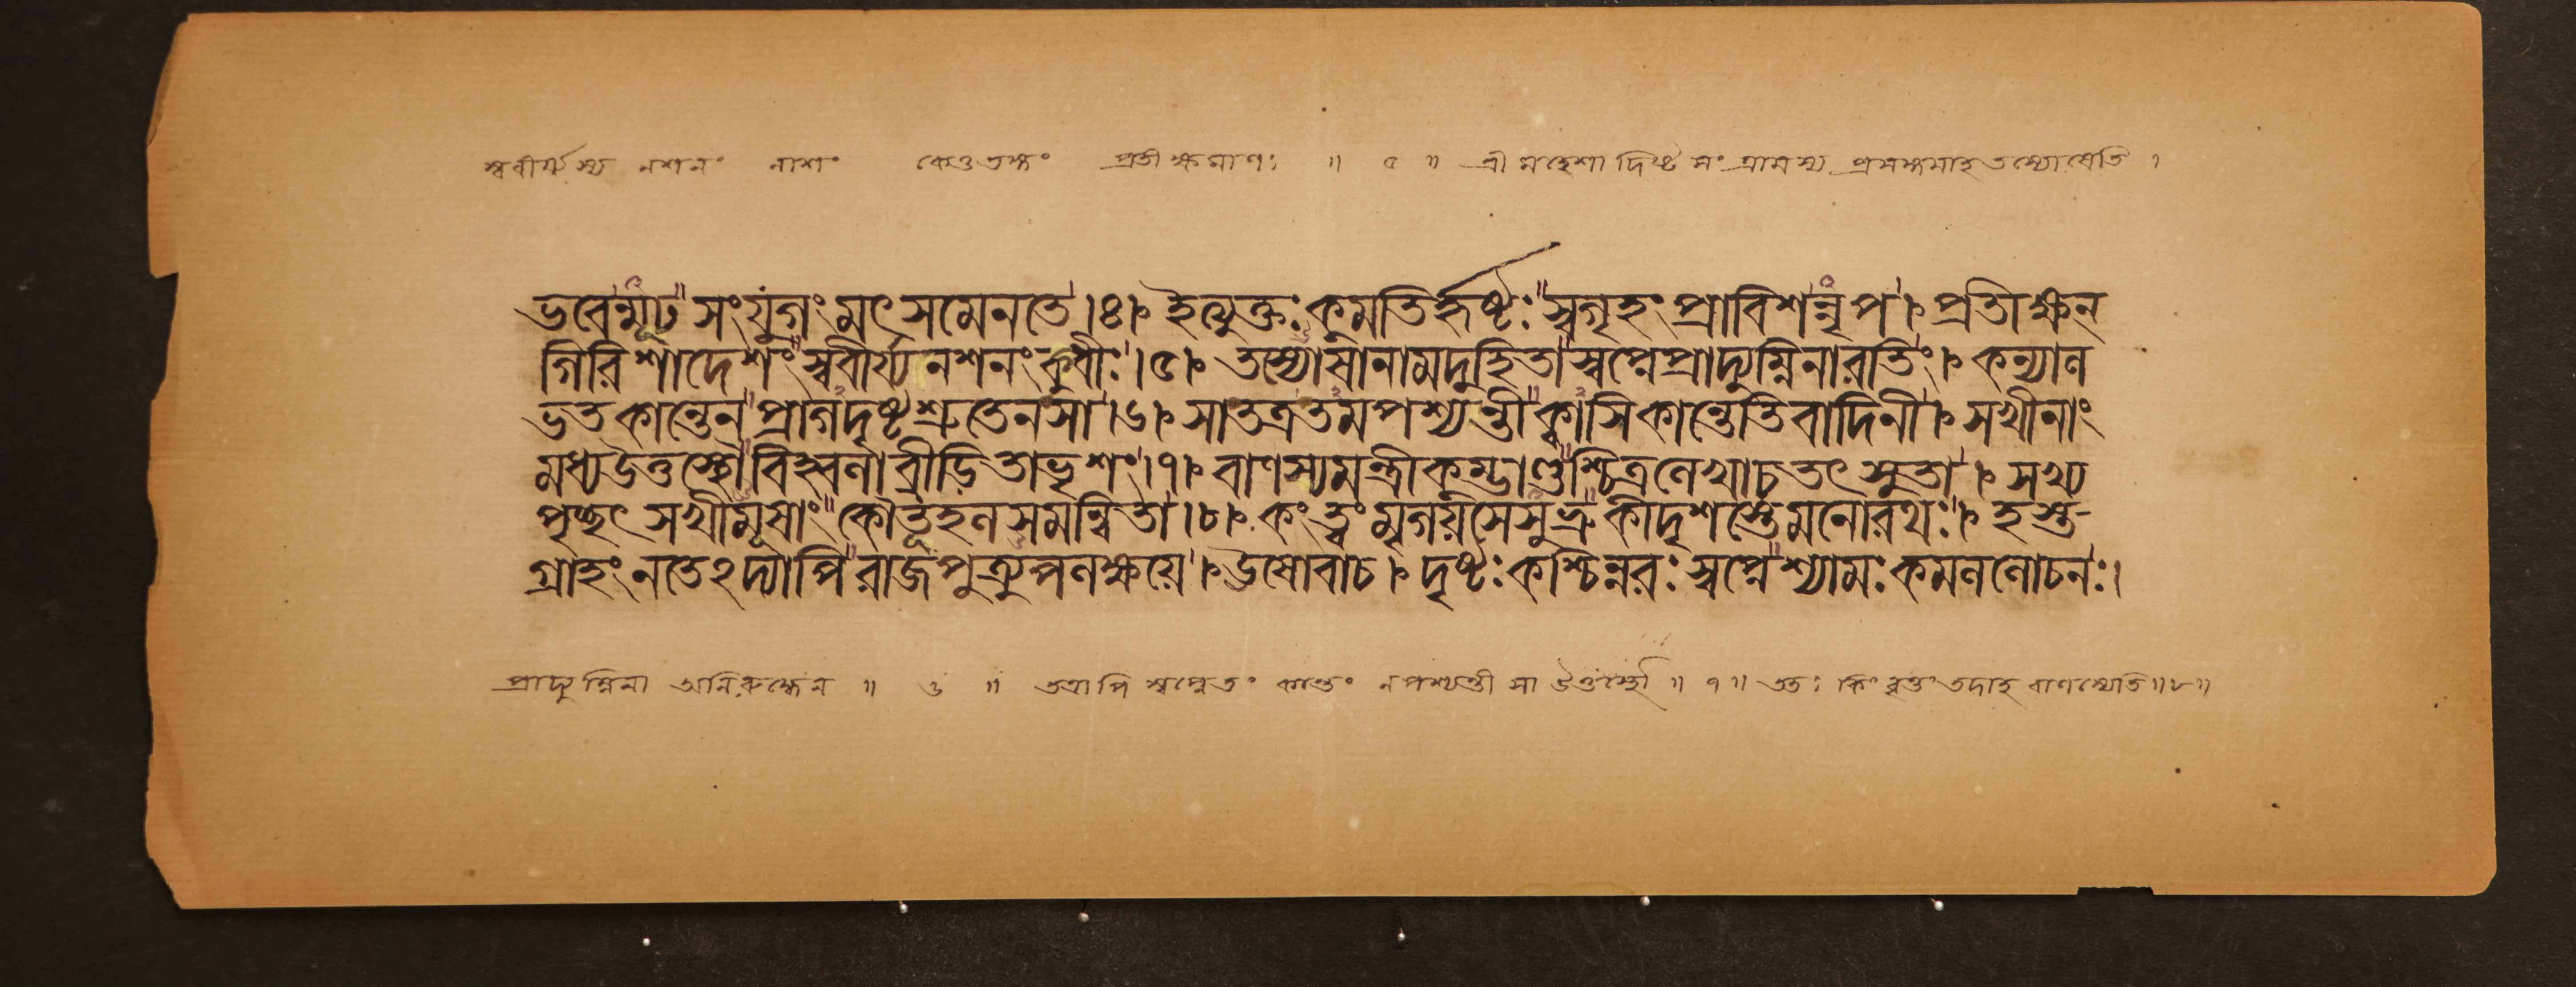 স্ববীর্য্যস্য নশনং নাশং কেতুভঙ্গং প্রতীক্ষমাণঃ ॥ ৫ ॥ শ্রীমহেশাদিষ্ট সংগ্রামস্য প্রসঙ্গমাহ তস্যোষেতি ।
ভবেন্মূঢ সংযুগং মৎসমেনতে ।৪। ইত্যুক্তঃ কুমতির্হৃষ্টঃ স্বগৃহং প্রাবিশন্নৃপ । প্রতীক্ষন্
গিরিশাদেশং স্ববীর্য্যনশনং কুধীঃ ।৫। তস্যোষানামদুহিতা স্বপ্নেপ্রাদ্যুম্নিনারতিং । কন্যাল
ভতকান্তেন প্রাগদৃষ্টশ্রুতেনসা ।৬। সাতত্রতমপশ্যন্তী ক্বাসিকান্তেতিবাদিনী । সখীনাং
মধ্যউত্তস্থৌ বিহ্বলা ব্রীড়িতাভৃশং ।৭। বাণস্যমন্ত্রীকুম্ভাণ্ডশ্চিত্রলেখাচতৎসুতা । সখ্য
পৃচ্ছৎ সখীমূষাং কৌতূহলসমন্বিতা ।৮। কং ত্বং মৃগয়সেসুভ্রু কীদৃশস্তেমনোরথঃ । হস্ত
গ্রাহং নতেঽদ্যাপি রাজপুত্র্যুপলক্ষয়ে । ঊষোবাচ । দৃষ্টঃ কশ্চিন্নরঃ স্বপ্নেশ্যামঃ কমললোচনঃ ।
প্রাদ্যুম্নিনা অনিরুদ্ধেন ॥ ৬ ॥ তত্রাপি স্বপ্নেতং কান্তং নপশ্যন্তী সা উত্তস্থৌ ॥ ৭ ॥ ততঃ কিং বৃত্তং তদাহ বাণস্যেতি ॥ ৮ ॥